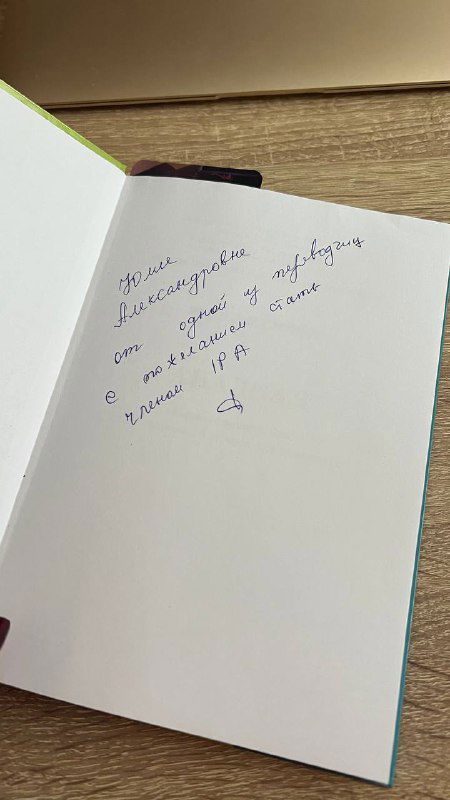 Юлии
Александровне
от одной из переводчиц
с пожеланием стать
членом IPA